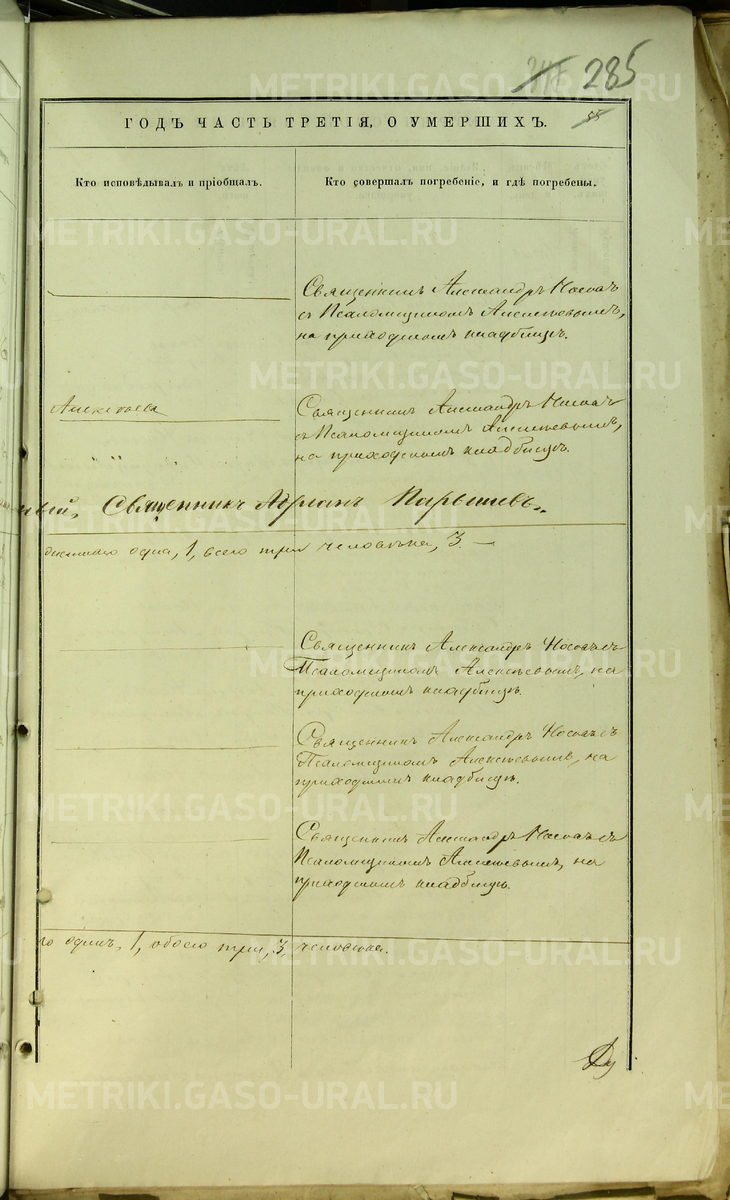 285
55
ГОДЪ ЧАСТЬ ТРЕТІЯ, О УМЕРШИХЪ.
Кто исповѣдывалъ и пріобщалъ.
Кто совершалъ погребеніе, и гдѣ погребены.
Священникъ Александръ Носовъ
съ Псаломщикомъ Алексѣевымъ,
на приходскомъ кладбищѣ.
Священникъ Александръ Носовъ
съ Псаломщикомъ Алексѣевымъ,
на приходскомъ кладбищѣ.
Священникъ Адріанъ
одна, 1, всего три человѣка, 3.
Священникъ Александръ Носовъ съ
Псаломщикомъ Алексѣевымъ, на
приходскомъ кладбищѣ.
Священникъ Александръ Носовъ съ
Псаломщикомъ Алексѣевымъ, на
приходскомъ кладбищѣ.
Священникъ Александръ Носовъ съ
Псаломщикомъ Алексѣевымъ, на
приходскомъ кладбищѣ.
го одинъ, 1, обоего три, 3, человѣка.
METRIKI.GASO-URAL.RU